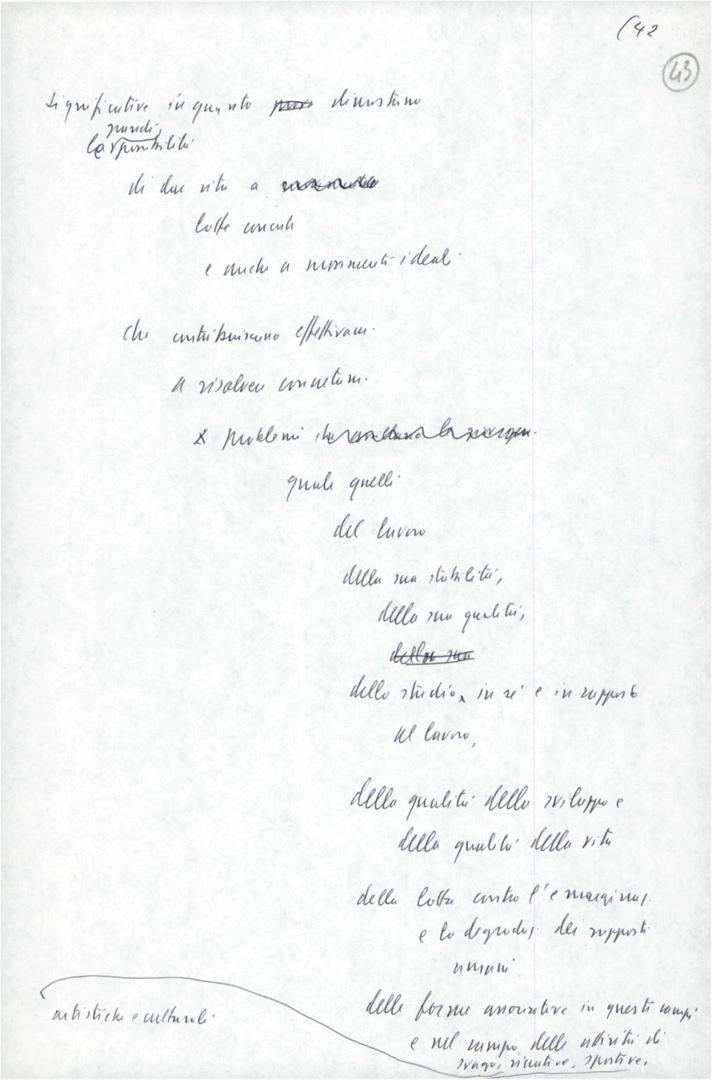 (42
43
significative in quanto dimostrano
grandi
le possibilità
di dar vita a
lotte concrete
e anche a movimenti ideali
che contribuiscano effettivam.
a risolvere concretam.
problemi
quale quelli
del lavoro
della sua stabilità,
della sua qualità,
della sua
dello studio, in sé e in rapporto
al lavoro,
della qualità dello sviluppo e
della qualità della vita
della lotta contro l'emarginaz.
e la degradaz. dei rapporti
umani
delle forme associative in questi campi
e nel campo delle attività di
svago, ricreative, sportive,
artistiche e culturali.